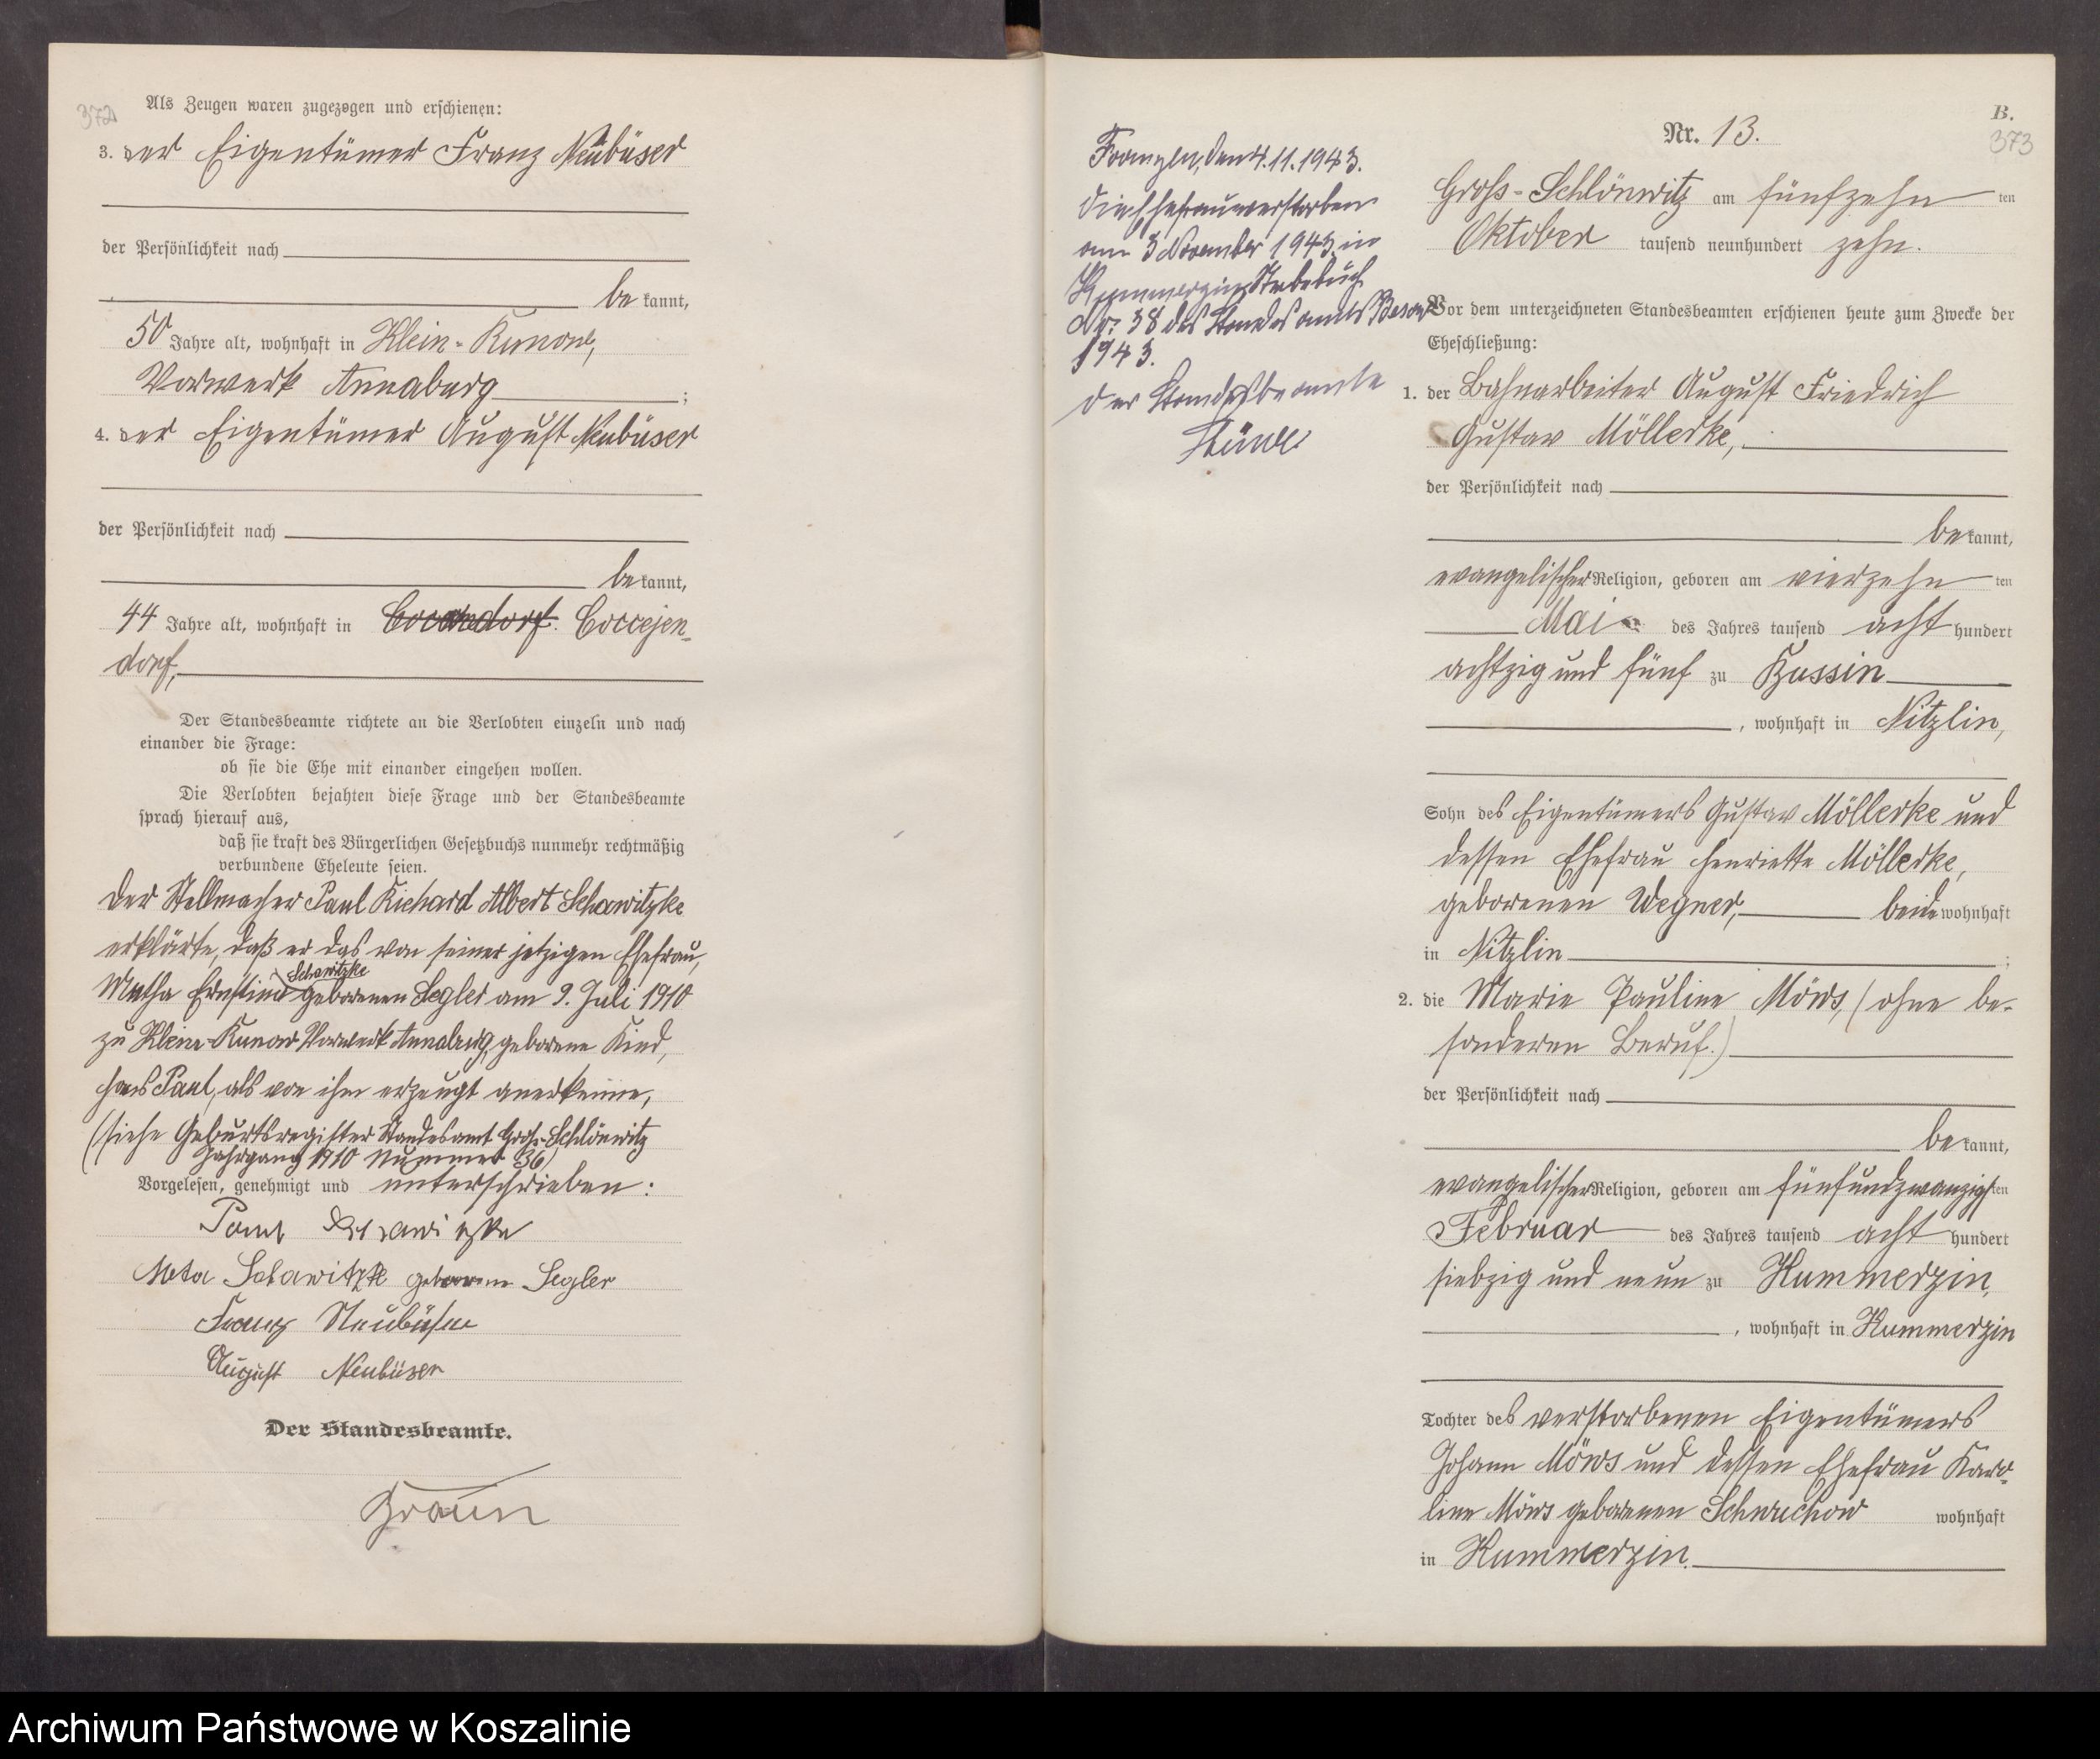 372
Als Zeugen waren zugezogen und erschienen:
3. der Eigentümer Franz Neubüser
der Persönlichkeit nach
be kannt,
50 Jahre alt, wohnhaft in Klein-Runow,
Vorwerk Annaburg ;
4. der Eigentümer August Neubüser
der Persönlichkeit nach
be kannt,
44 Jahre alt, wohnhaft in Coccejen-
dorf,
Der Standesbeamte richtete an die Verlobten einzeln und nach
einander die Frage:
ob sie die Ehe mit einander eingehen wollen.
Die Verlobten bejahten diese Frage und der Standesbeamte
sprach hierauf aus,
daß sie kraft des Bürgerlichen Gesetzbuchs nunmehr rechtmäßig
verbundene Eheleute seien.
Der Stellmacher Paul Richard Albert Schawitzke
erklärte, daß er das von seiner jetzigen Ehefrau,
Schawitzke
Ernstine geborenen Segler am 9. Juli 1910
zu Klein-Runow Vorwerk Annaburg, geborene Kind,
Paul, als von ihm erzeugt anerkenne,
(siehe Geburtsregister Standesamt Groß-Schlönwitz
Jahrgang 1910 Nummer 36)
Vorgelesen, genehmigt und unterschrieben:
Paul Schawitzke
Meta Schawitzke geborene Segler
Franz Neubüser
August Neubüser
Der Standesbeamte.
Braun
den 4.11.1943.
Die Ehefrau verstorben
am 3 November 1943 in
Kummerzin Sterbebuch
Nr. 38 des Standesamts Besow
1943.
Der Standesbeamte
B.
373
Nr. 13.
Groß-Schlönwitz am fünfzehn ten
Oktober tausend neunhundert zehn.
Vor dem unterzeichneten Standesbeamten erschienen heute zum Zwecke der
Eheschließung:
1. der Bahnarbeiter August Friedrich
Gustav Möllerke,
der Persönlichkeit nach
be kannt,
evangelischer Religion, geboren am vierzehn ten
Mai des Jahres tausend acht hundert
achtzig und fünf zu Kussin
, wohnhaft in Nitzlin,
Sohn des Eigentümers Gustav Möllerke und
dessen Ehefrau Henriette Möllerke,
geborenen Wegner, beide wohnhaft
in Nitzlin ;
2. die Marie Pauline Möws, (ohne be-
sonderen Beruf.)
der Persönlichkeit nach
be kannt,
evangelischer Religion, geboren am fünfundzwanzigsten
Februar des Jahres tausend acht hundert
siebzig und neun zu Kummerzin,
, wohnhaft in Kummerzin
Tochter des verstorbenen Eigentümers
Johann Möws und dessen Ehefrau Karo-
line Möws geborenen wohnhaft
in Kummerzin.
Archiwum Państwowe w Koszalinie